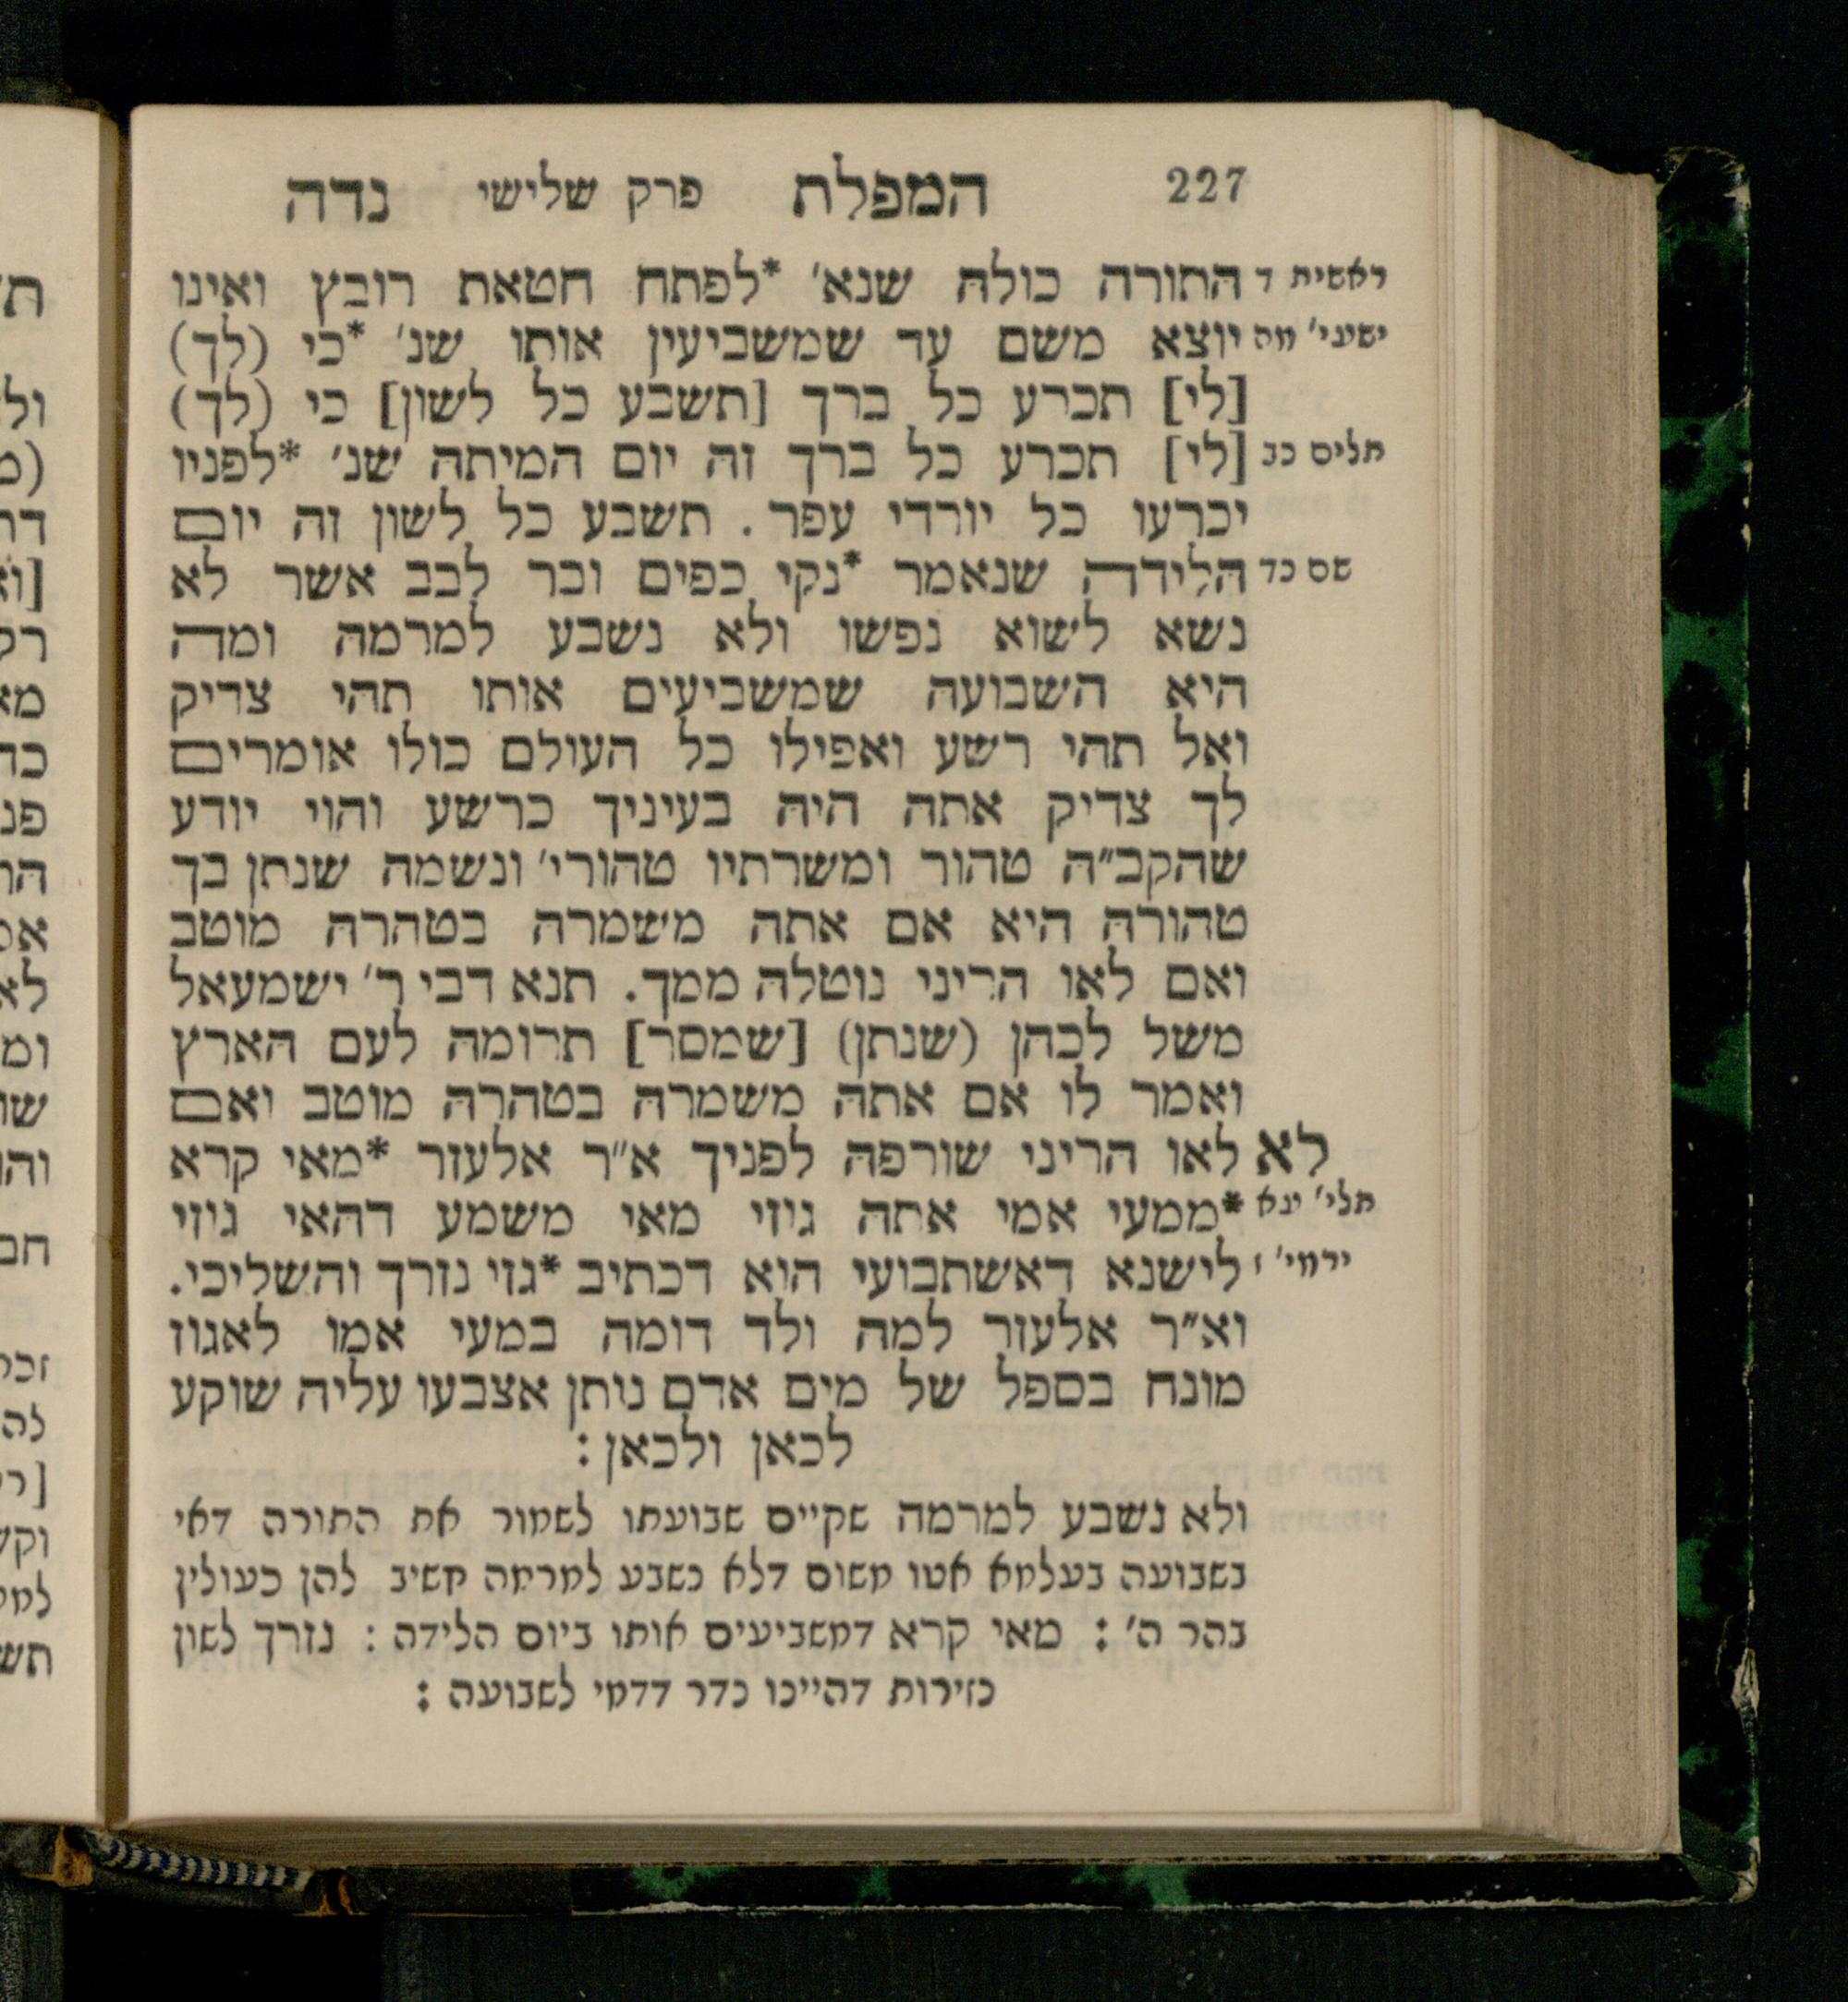 227 המפלת פרק שלישי נדה
ראשית ד התורה כולה שנא׳ *לפתח חטאת רובץ ואינו
ישעי׳ מה יוצא משם עד שמשביעין אותו שנ׳ *כי (לך)
[לי] תכרע כל ברך [תשבע כל לשון] כי (לך)
תלים כב [לי] תכרע כל ברך זה יום המיתה שנ׳ *לפניו
יכרעו כל יורדי עפר. תשבע כל לשון זה יום
שם כד הלידה שנאמר *נקי כפים ובר לבב אשר לא
נשא לשוא נפשו ולא נשבע למרמה ומה
היא השבועה שמשביעים אותו תהי צדיק
ואל תהי רשע ואפילו כל העולם כולו אומרים
לך צדיק אתה היה בעיניך כרשע והוי יודע
שהקב״ה טהור ומשרתיו טהורי׳ ונשמה שנתן בך
טהורה היא אם אתה משמרה בטהרה מוטב
ואם לאו הריני נוטלה ממך. תנא דבי ר׳ ישמעאל
משל לכהן (שנתן) [שמסר] תרומה לעם הארץ
ואמר לו אם אתה משמרה בטהרה מוטב ואם
לא לאו הריני שורפה לפניך א״ר אלעזר *מאי קרא
תלי׳ עא *ממעי אמי אתה גוזי מאי משמע דהאי גוזי
ירמי׳ ז לישנא דאשתבועי הוא דכתיב *גזי נזרך והשליכי.
וא״ר אלעזר למה ולד דומה במעי אמו לאגוז
מונח בספל של מים אדם נותן אצבעו עליה שוקע
לכאן ולכאן:
ולא נשבע למרמה שקיים שבועתו לשמור את התורה דאי
בשבועה בעלמא אטו משום דלא נשבע למרמה חשיב להן כעולין
בהר ה׳: מאי קרא דמשביעים אותו ביום הלידה: נזרך לשון
נזירות דהיינו נדר דדמי לשבועה: